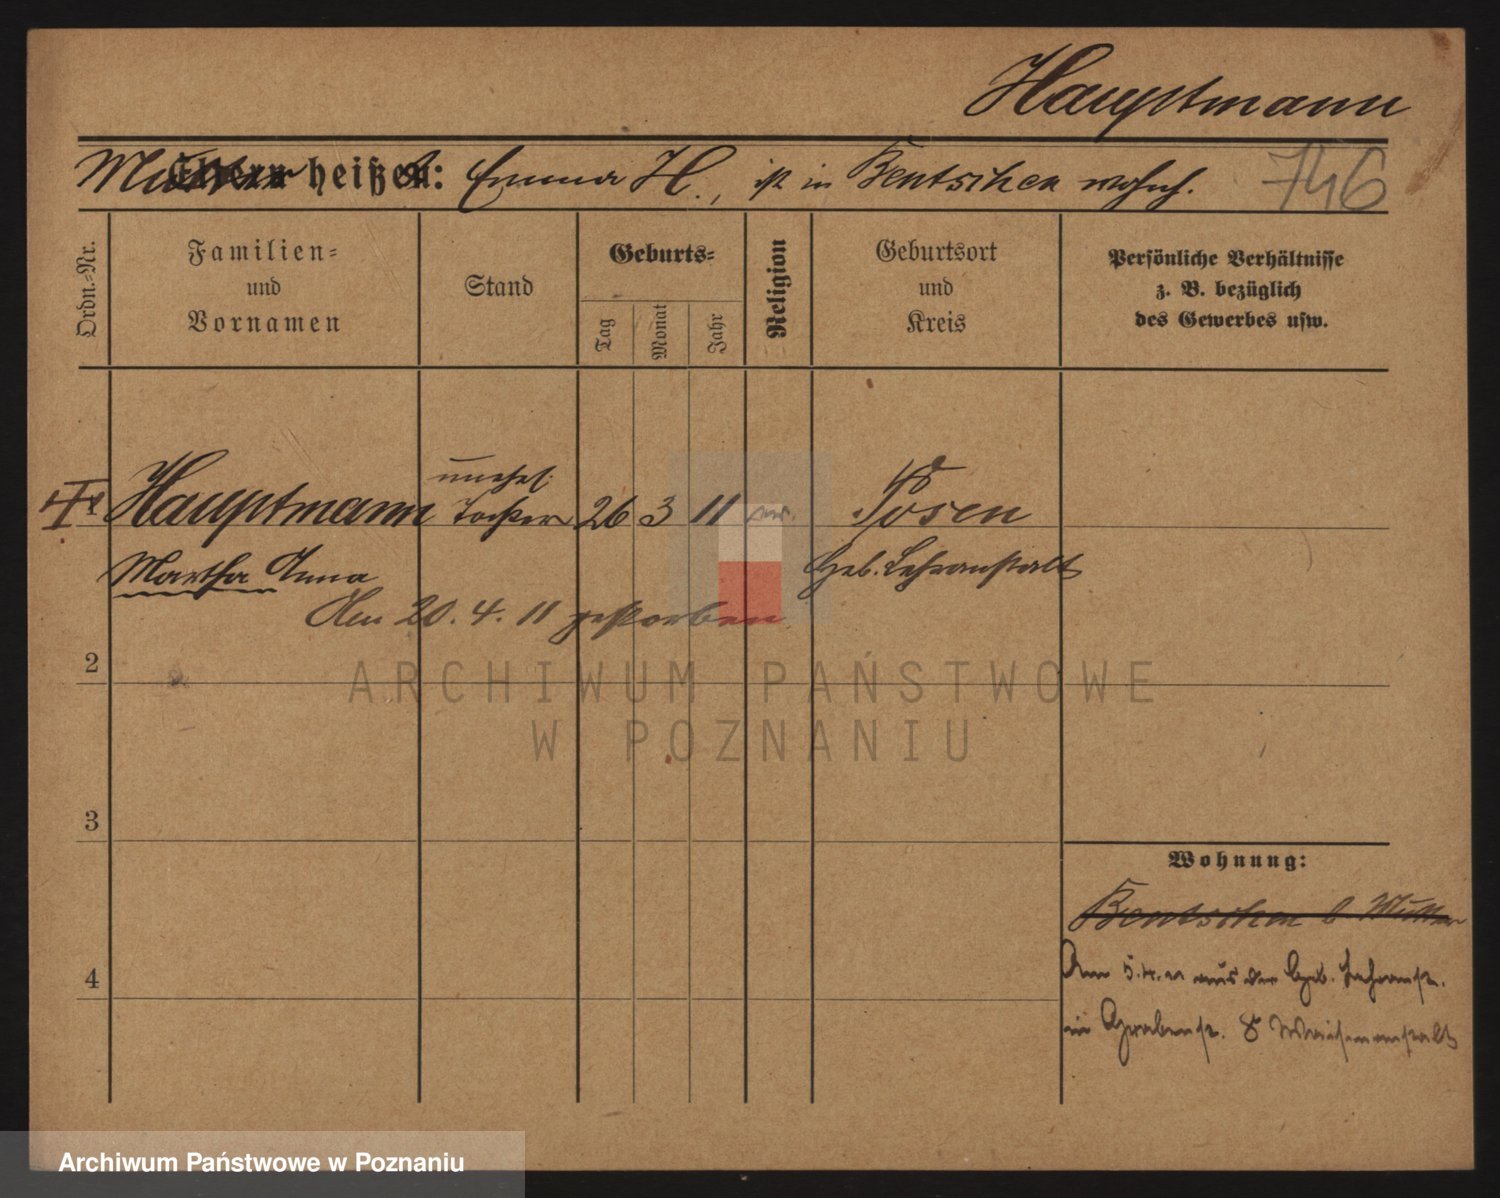 Hauptmann
Mutter heißt: Emma H., ist in Bentschen wohnh.
746
Ordn.-Nr.
Familien-
und
Vornamen
Stand
Geburts-
Tag
Monat
Jahr
Religion
Geburtsort
und
Kreis
Persönliche Verhältnisse
z. B. bezüglich
des Gewerbes usw.
unehel.
1 Hauptmann Tochter 26 3 11 ev. Posen
Martha Anna Geb. Lehranstalt
Am 20. 4. 11 gestorben
2
ARCHIWUM PAŃSTWOWE
W POZNANIU
3
Wohnung:
Bentschen b Mutter
4
Am 5.4.11 aus der Geb. Lehranst.
in Grabenst. 8 Waisenanstalt
Archiwum Państwowe w Poznaniu